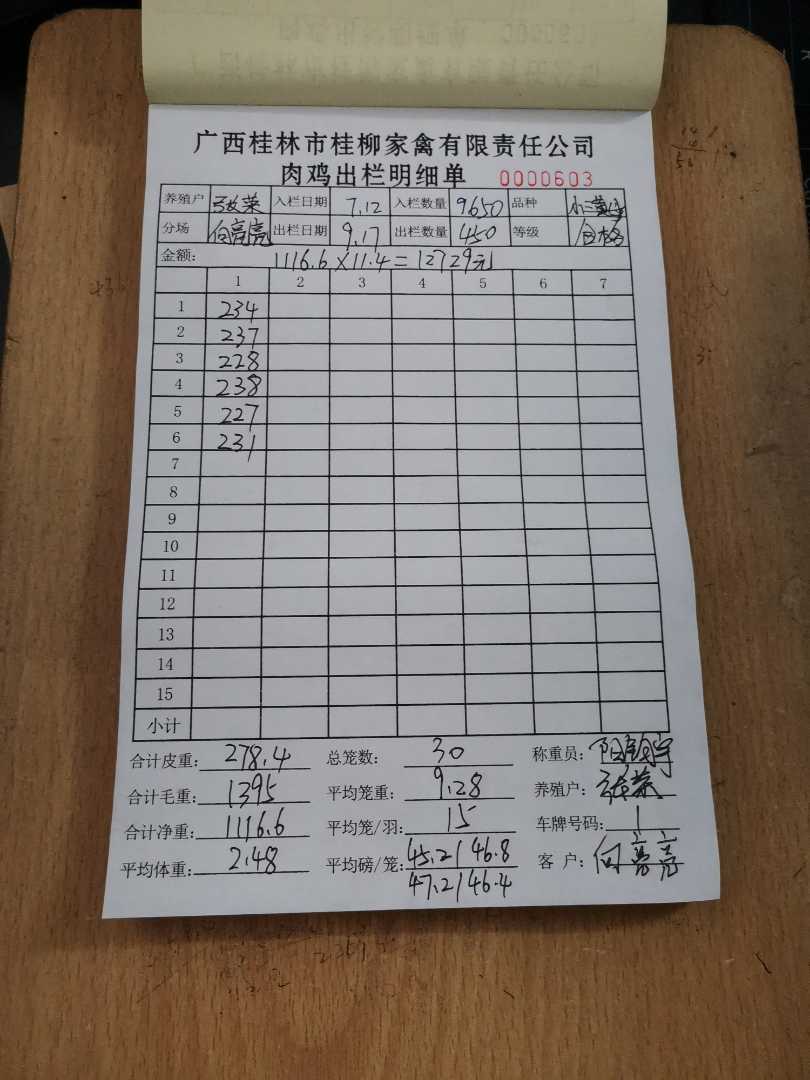 广西桂林市桂柳家禽有限责任公司
肉鸡出栏明细单 0000603
养殖户 入栏日期 7.12 入栏数量 9650 品种
分场 向亮亮 出栏日期 9.17 出栏数量 450 等级 合格
金额: 1116.6×11.4=12729元
1 2 3 4 5 6 7
1 234
2 237
3 228
4 238
5 227
6 231
7
8
9
10
11
12
13
14
15
小计
合计皮重: 278.4 总笼数: 30 称重员:
合计毛重: 1395 平均笼重: 9.28 养殖户:
合计净重: 1116.6 平均笼/羽: 15 车牌号码: 1
平均体重: 2.48 平均磅/笼: 45.2/46.8 客 户: 向亮亮
47.2/46.4